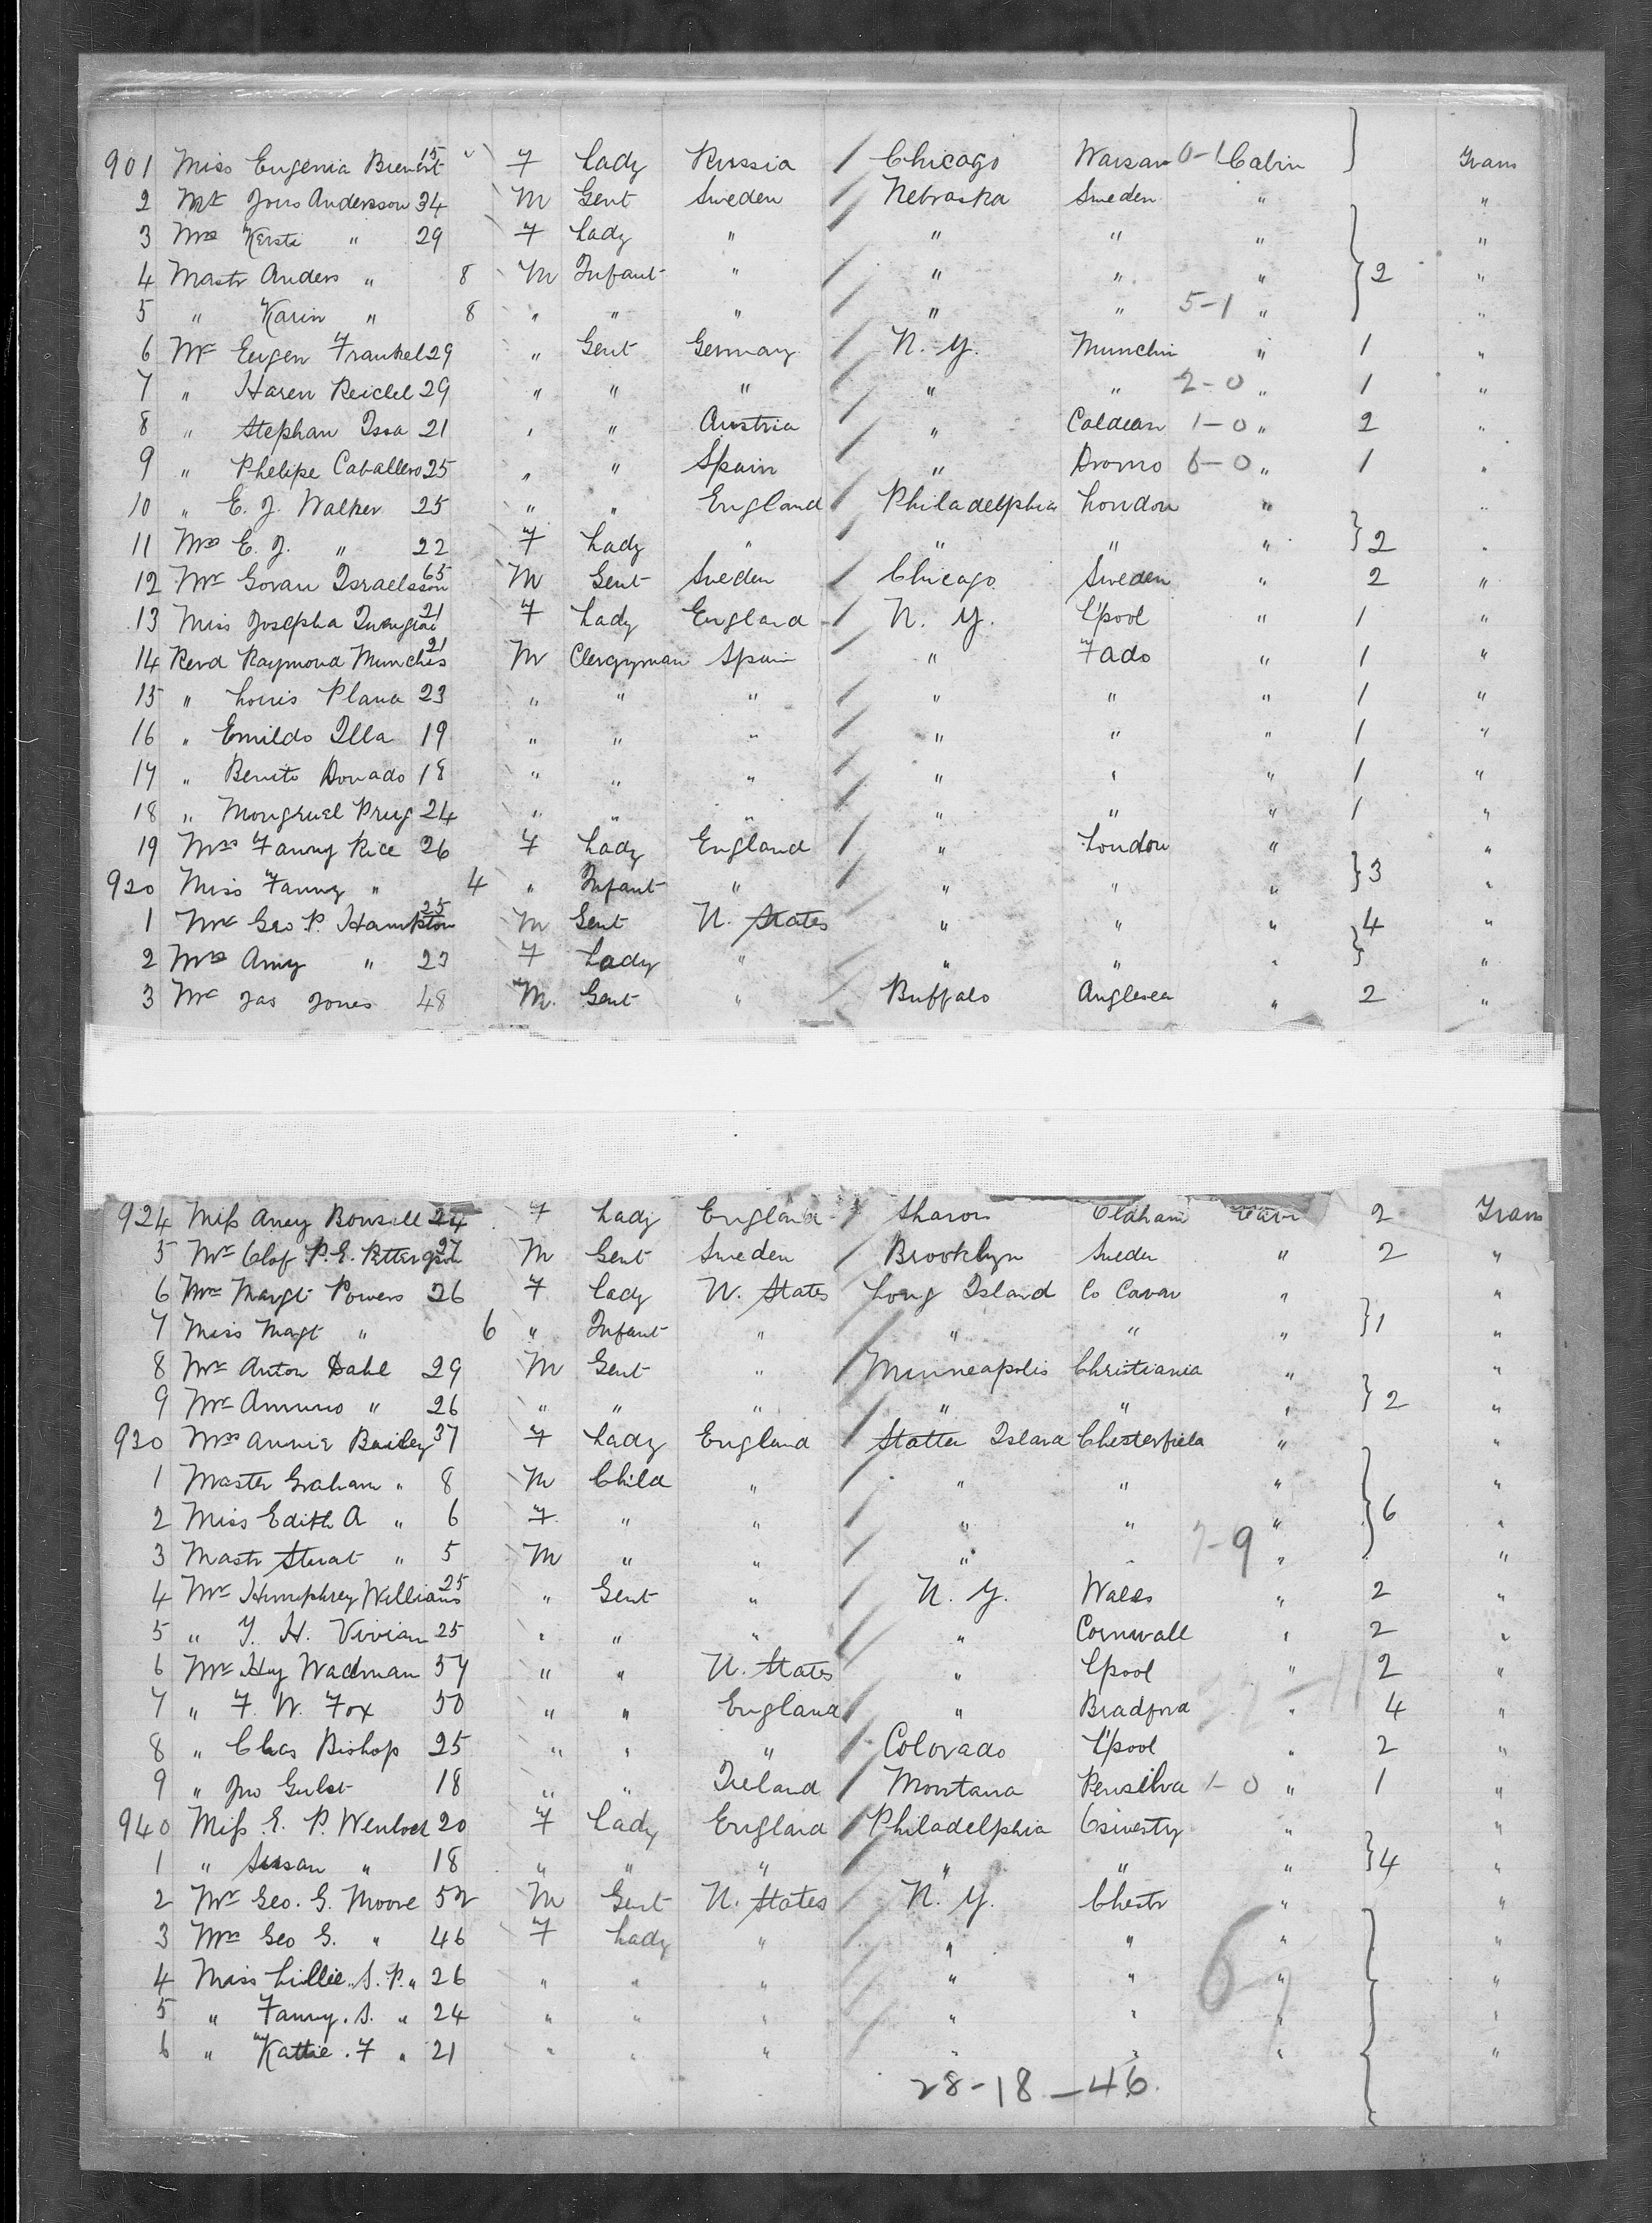 901 Miss Eugenia Bienert 15 " F Lady Russia / Chicago Warsaw 0-1 Cabin } Trans
2 Mr Jons Andersson 34 M Gent Sweden / Nebraska Sweden " "
3 Mrs Kersti " 29 F Lady " / " " " "
4 Mastr Anders " 8 M Infant " / " " " } 2 "
5 " Karin " 8 " " " / " " 5-1 " "
6 Mr Eugen Frankel 29 " Gent Germany / N. Y. Munchin " 1 "
7 " Haren Reichel 29 " " " / " " 2-0 " 1 "
8 " Stephan Issa 21 " " Austria / " Caldean 1-0 " 2 "
9 " Phelipe Caballero 25 " " Spain / " 6-0 " 1 "
10 " E. J. Walker 25 " " England / Philadelphia London " "
11 Mrs E. J. " 22 F Lady " / " " " } 2 "
12 Mr Goran Israelsson 65 M Gent Sweden / Chicago Sweden " 2 "
13 Miss Josepha 21 F Lady England / N. Y. L'pool " 1 "
14 Revd Raymond Munchis 21 M Clergyman Spain / " Fado " 1 "
15 " Louis Plana 23 " " " / " " " 1 "
16 " Emildo Illa 19 " " " / " " " 1 "
17 " Benito Donado 18 " " " / " " " 1 "
18 " Prug 24 " " " / " " " 1 "
19 Mrs Fanny Rice 26 F Lady England / " London " "
920 Miss Fanny " 4 " Infant " / " " " } 3 "
1 Mr Geo P. Hampton 25 M Gent U. States / " " " 4 "
2 Mrs Amy " 23 F Lady " / " " " } "
3 Mr Jas Jones 48 M. Gent " / Buffalo Anglesea " 2 "
924 Miss Bonsall 24 F Lady England / Sharon Oldham Cabin 2 Trans
5 Mr Olof P. E. Pettersson 27 M Gent Sweden / Brooklyn Sweden " 2 "
6 Mrs Margt Powers 26 F Lady U. States Long Island Co Cavan " "
7 Miss Magt " 6 " Infant " / " " " } 1 "
8 Mr Anton Dahl 29 M Gent " / Minneapolis Christiania " "
9 Mr " 26 " " " / " " " } 2 "
930 Mrs Annie Bailey 37 F Lady England / Statten Island Chesterfield " "
1 Master Graham " 8 M Child " / " " " "
2 Miss Edith A " 6 F. " " / " " " } 6 "
3 Mastr Sturat " 5 M " " / " " 7-9 " "
4 Mr Humphrey Williams 25 " Gent " / N. Y. Wales " 2 "
5 " T. H. Vivian 25 " " " / " Cornwall " 2 "
6 Mr Hy Wadman 57 " " U. States / " L'pool " 2 "
7 " F. W. Fox 50 " " England / " Bradford " 4 "
8 " Chas Bishop 25 " " " / Colorado L'pool " 2 "
9 " Jno 18 " " Ireland / Montana Pensilva 1-0 " 1 "
940 Miss E. P. Wenlock 20 F Lady England / Philadelphia Oswestry " "
1 " Susan " 18 " " " / " " " } 4 "
2 Mr Geo. G. Moore 52 M Gent U. States / N. Y. Chestr " "
3 Mrs Geo G. " 46 F Lady " / " " " "
4 Miss Lillie. S. P. " 26 " " " / " " 6 " } "
5 " Fanny. S. " 24 " " " / " " " "
6 " Kattie. F " 21 " " " " " " "
28-18-46